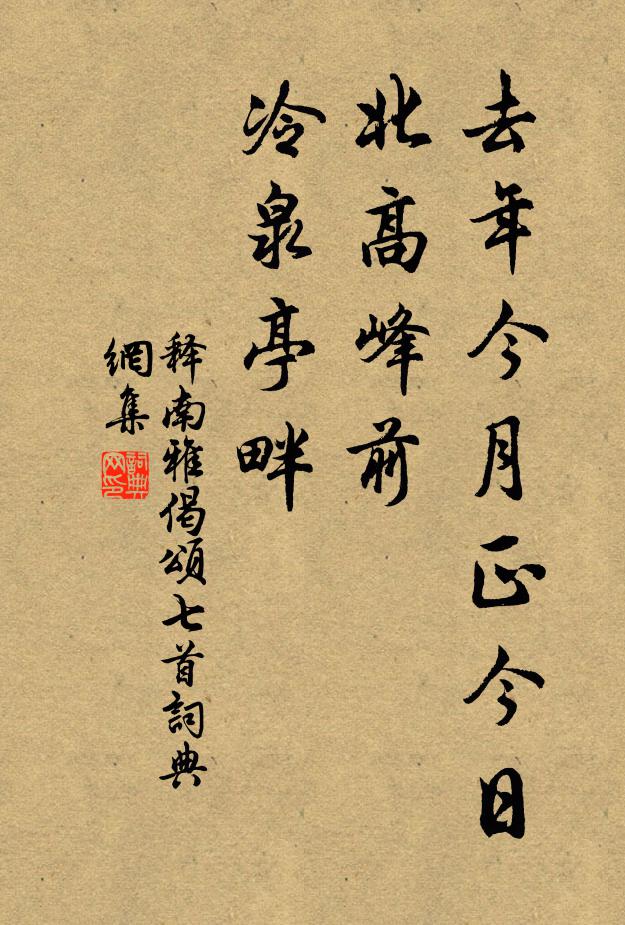 去年今月正今日
北高峰前
冷泉亭畔
释南雅偈頌七首詞典
網集
詞典
网印